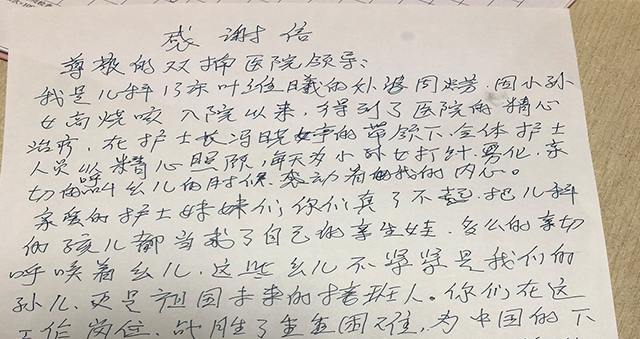 感谢信
尊敬的双桥医院领导:
我是儿科13床叶维曦的外婆周淑芳,因小孙
女高烧咳入院以来,得到了医院的精心
治疗,在护士长冯晓婷的带领下,全体护士
人员以精心照顾,每天为小孙女打针.雾化,亲
切的呼叫幺儿的时候.感动着的我的内心。
亲爱的护士妹妹们你们真了不起.把儿科
的孩儿都当成了自己的亲生娃.多么的亲切
呼唤着幺儿.这些幺儿不紧紧是我们的
孙儿.更是祖国未来的接班人。你们在这
工作岗位.战胜了重重困难,为中国的下